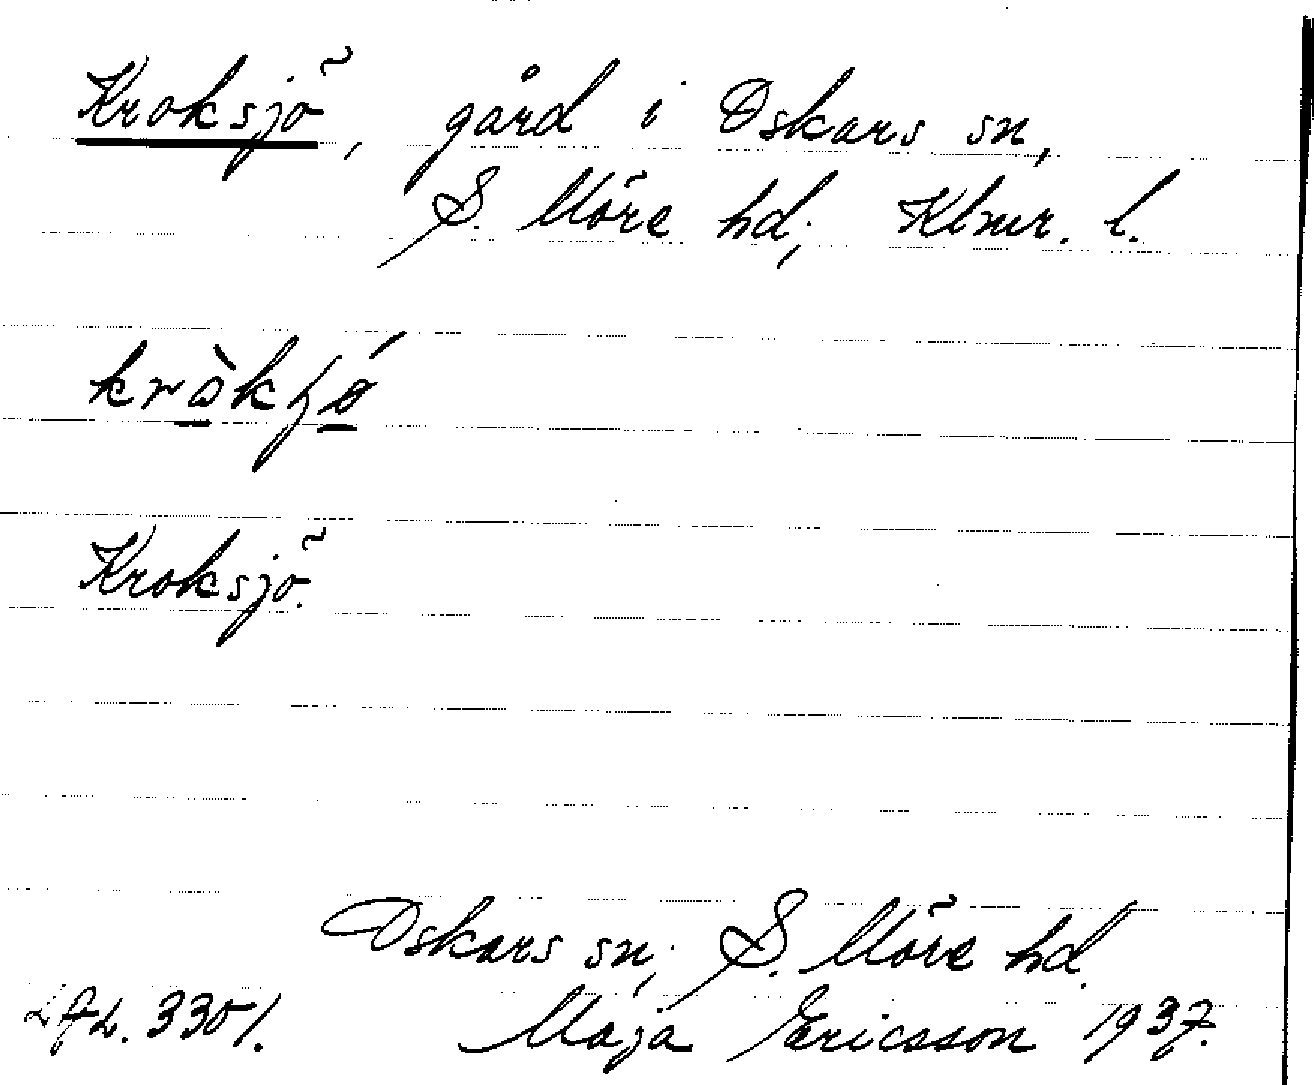 Kroksjö, gård i Oskars sn,
S. Möre hd, Klmr. l.
Kroksjö.
Oskars sn, S. Möre hd.
LfL. 3301. Maja Ericsson 1937.